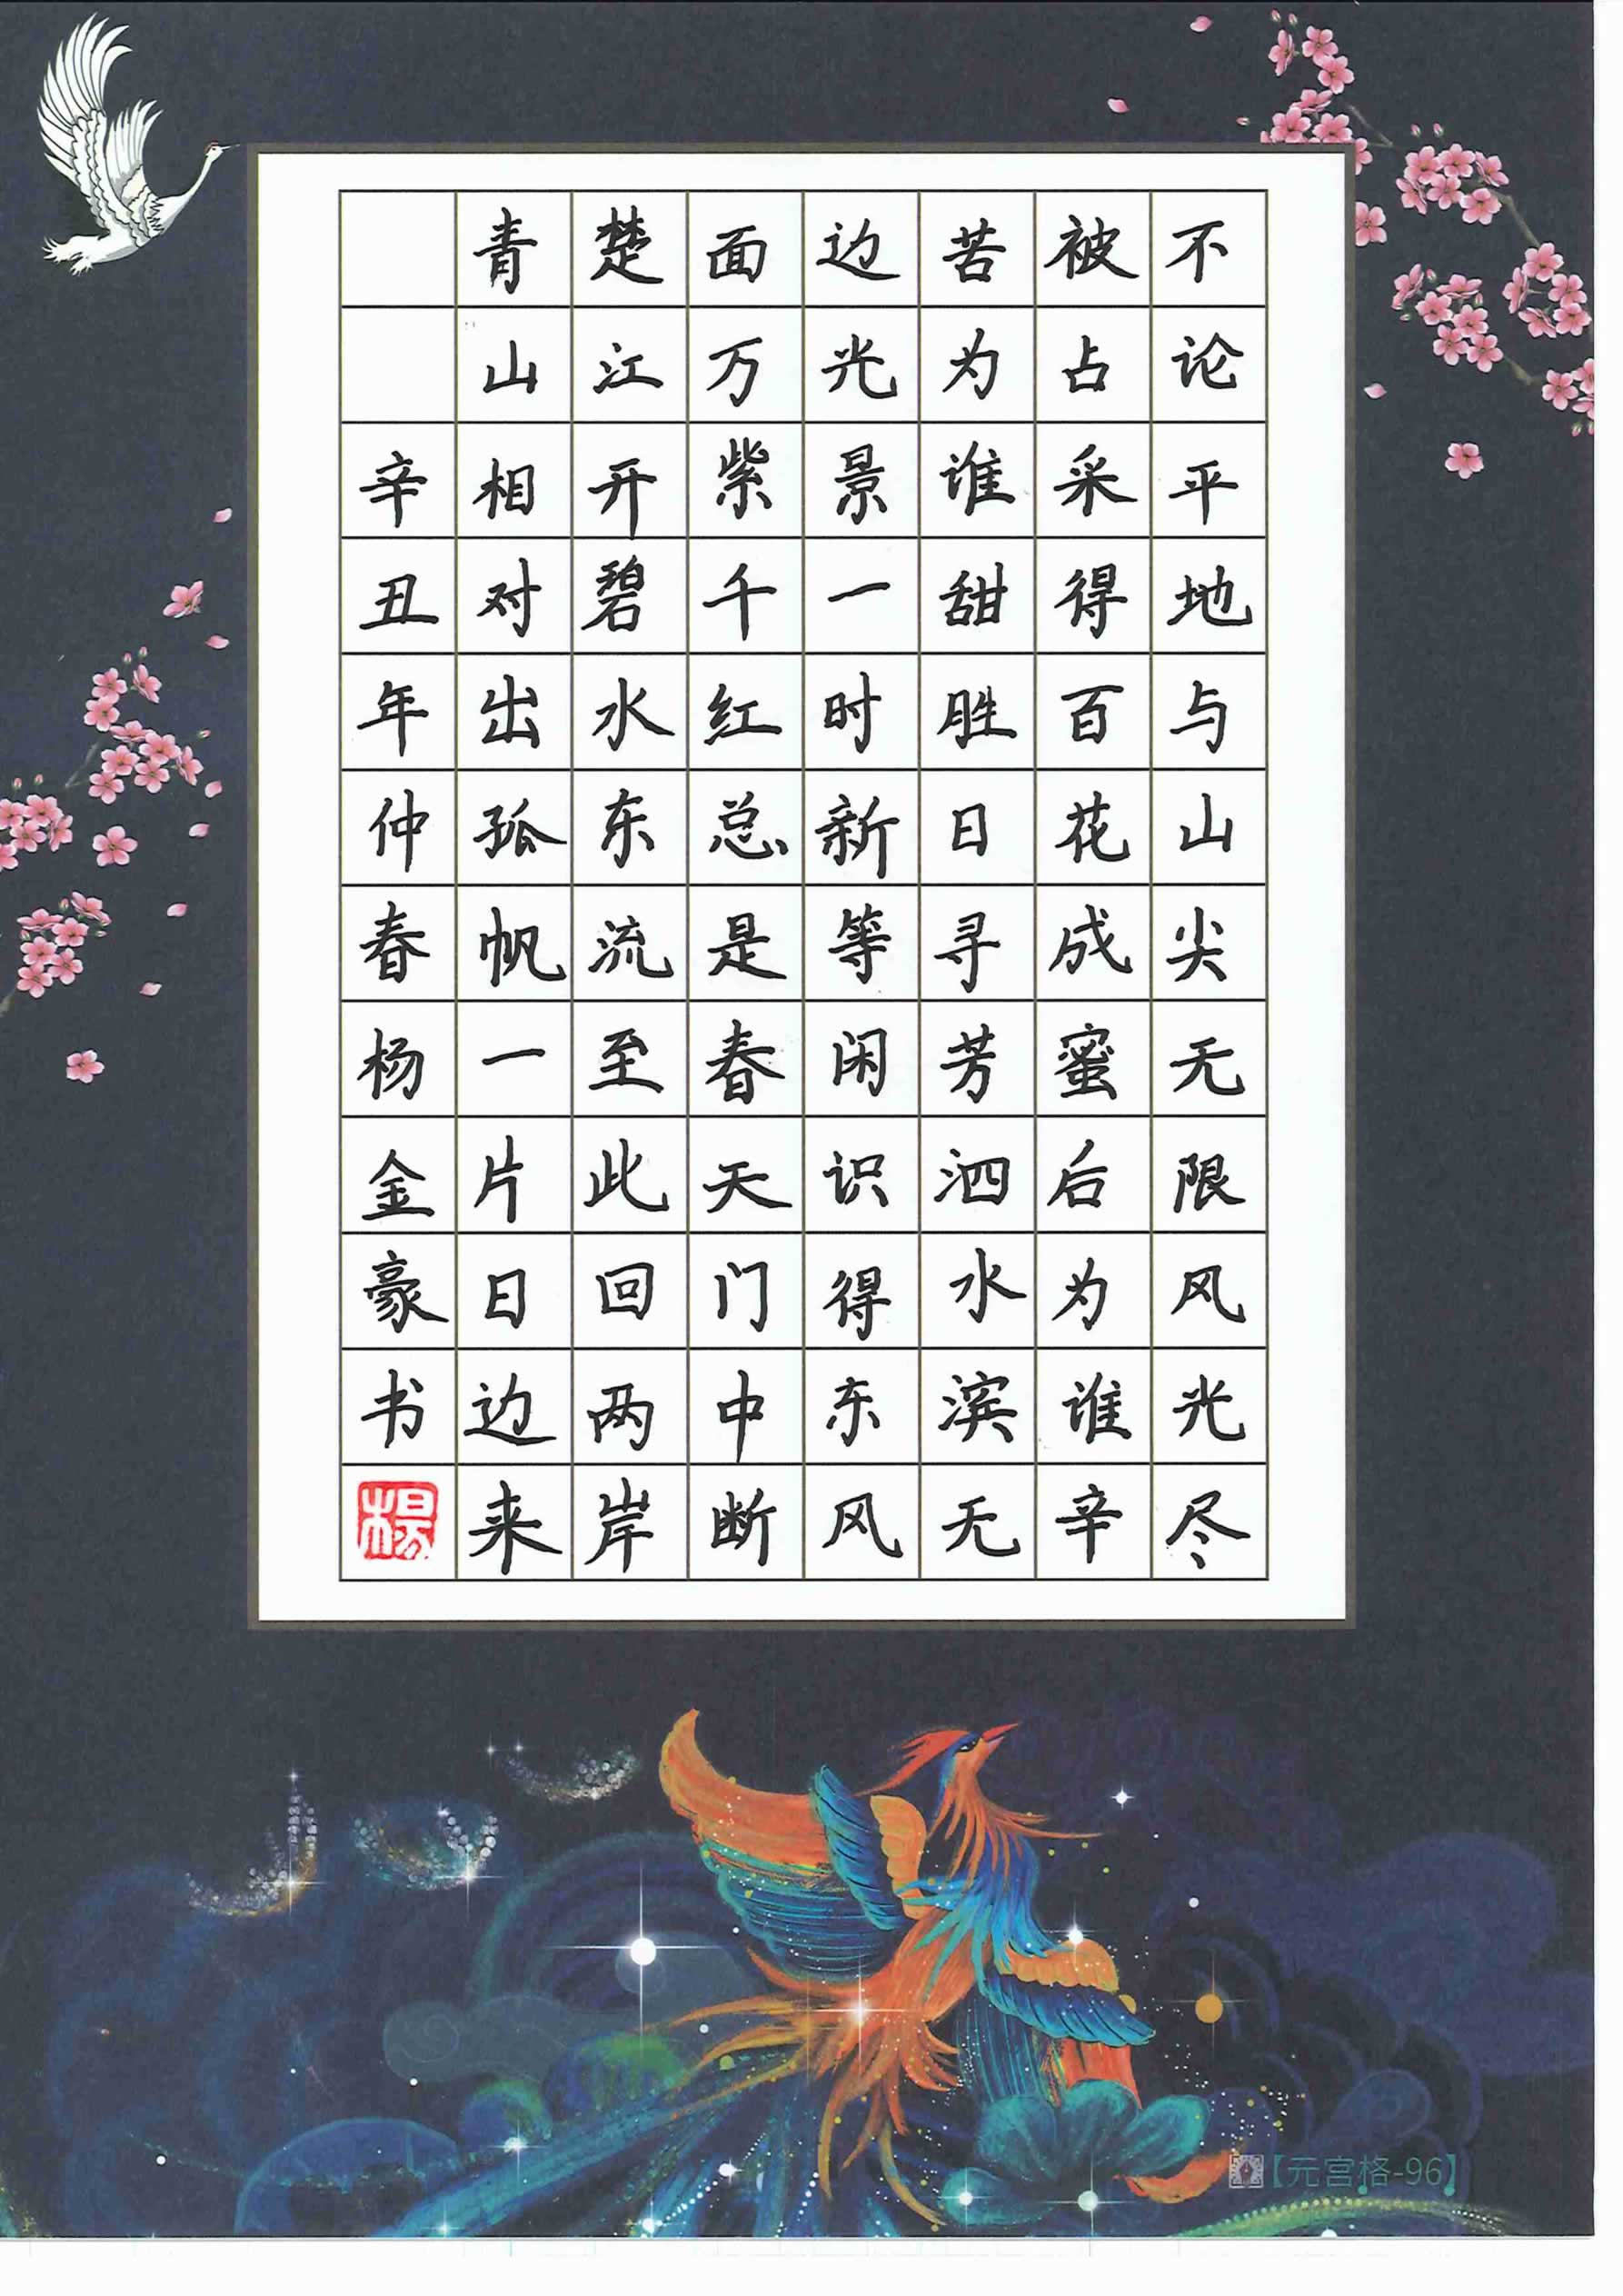 不论平地与山尖无限风光尽
被占采得百花成蜜后为谁辛
苦为谁甜胜日寻芳泗水滨无
边光景一时新等闲识得东风
面万紫千红总是春天门中断
楚江开碧水东流至此回两岸
青山相对出孤帆一片日边来
辛丑年仲春杨金豪书
楊
【元宫格-96】